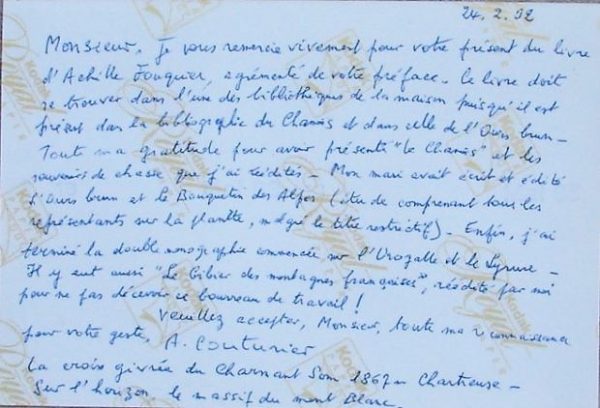 24.2.92
Monsieur, je vous remercie vivement pour votre présent du livre
d'Achille Fouquier, agrémenté de votre préface. Ce livre doit
se trouver dans l'une des bibliothèques de la maison puisqu'il est
présent dans la bibliographie du Chamois et dans celle de l'Ours brun -
Toute ma gratitude pour avoir présenté "le Chamois" et les
souvenirs de chasse que j'ai réédités - Mon mari avait écrit et édité
l'Ours brun et le Bouquetin des Alpes (titre comprenant tous les
représentants sur la planète, malgré le titre restrictif) - Enfin, j'ai
terminé la double monographie commencée sur l'Urogalle et le Lyrure -
Il y eut aussi "Le Gibier des montagnes françaises", réédité par moi
pour ne pas décevoir ce bourreau de travail !
Veuillez accepter, Monsieur, toute ma reconnaissance
pour votre geste, A. Couturier
La croix givrée du Charmant Som 1867 m Chartreuse -
Sur l'horizon, le massif du mont Blanc.
Kodak
Royal
PAPER